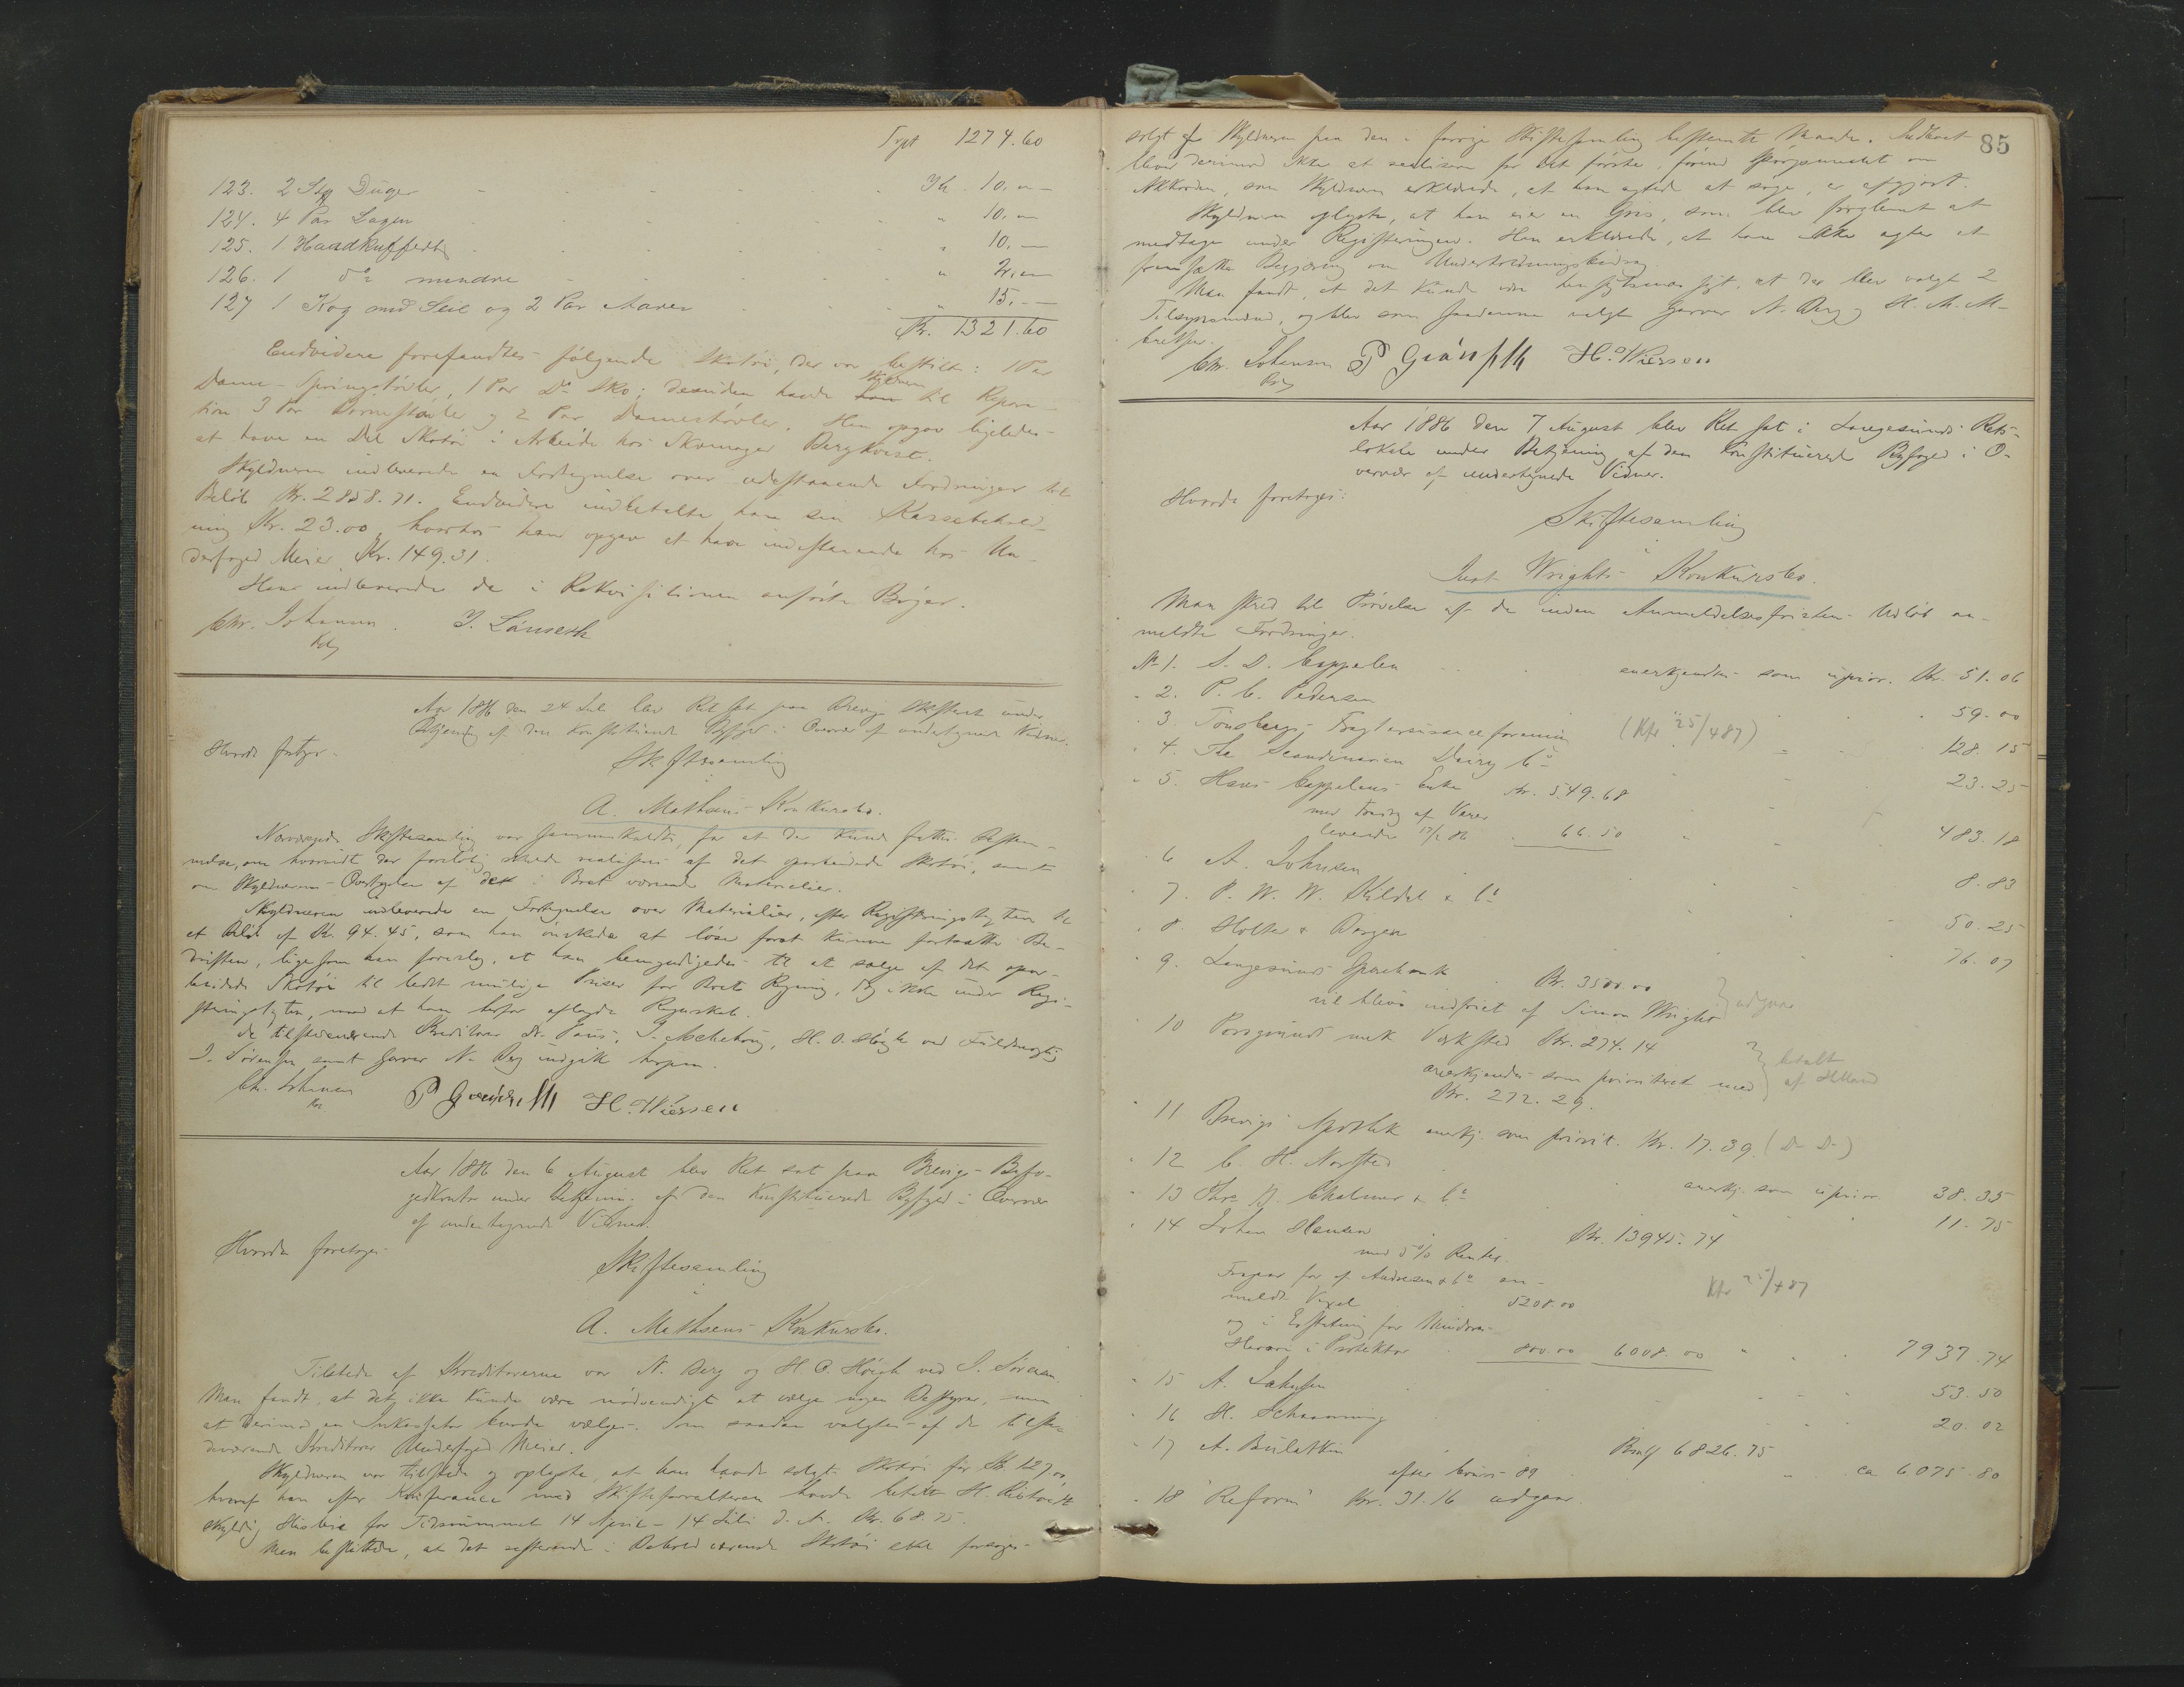 Trpt 1274.60
123. 2 Stk Duger " 10.
124. 4 Par Lagen " 10.
125. 1 Haandkuffert " 10.
126. 1 do mindre " 2.
127 1 Kog med Seil og 2 Par Aarer " 15.
Kr. 1321.60
Endvidere forefandtes følgende Skotøi, der var bestilt: 1 Par
Dame-Springstøvler, 1 Par Do Sko; desuden havde Skyldneren til Repara-
tion 3 Par Børnestøvler og 2 Par Damestøvler. Han opgav ligeledes
at have en Del Skotøi i Arbeide hos Skomager Bergkvist.
Skyldneren indleverede en Fortegnelse over udestaaende Fordringer til
Beløb Kr. 2858.71. Endvidere indbetalte han sin Kassebehold-
ning Kr. 23.00, hvorhos han opgav at have indestaaende hos Un-
derfoged Meier Kr. 149.31.
Han indleverede de i Rekvisitionen anførte Bøger.
Chr. Johansen
Aar 1886 den 24 Juli blev Ret sat paa Brevigs under
Betjening af den konstituerede Byfoged i Overvær af undertegnede Vidner.
Hvorda foretoges
Skiftesamling
i
A. Mathsens Konkursbo.
Nærværende Skiftesamling var sammenkaldt, for at der kunde fattes Bestem-
melse, om hvorvidt der foreløbig skulde realiseres af det oparbeidede Skotøi, samt
om Skyldnerens Overtagelse af det i Boet værende Materialier.
Skyldneren indleverede en Fortegnelse over Materialier, efter Registreringstaxten til
et Beløb af Kr. 94.45, som han ønskede at løse forat kunne fortsætte Be-
driften, ligesom han foreslog, at han bemyndigedes til at sælge af det opar-
beidede Skotøi til bedst mulige Priser for Boets Regning, dog ikke under Regi-
streringstaxten, mod at han herfor aflagde Regnskab.
De tilstedeværende Kreditorer Paus, J. Aschehoug, H. O. Høegh ved Fuldmægtig
J. Sørensen samt Garver N. Berg indgik herpaa.
Chr. Johansen
Aar 1886 den 6 August blev Ret sat paa Brevigs Byfo-
gedkontor under Betjening af den konstituerede Byfoged i Overvær
af undertegnede Vidner.
Hvorda foretoges
Skiftesamling
i
A. Mathsens Konkursbo.
Tilstede af Kreditorerne var N. Berg og H. O. Høegh ved J. Sørensen.
Man fandt, at det ikke kunde være nødvendigt at vælge nogen Bestyrer, men
at derimod en Inkassator burde vælges. Som saadan valgtes af de tilste-
deværende Kreditorer Underfoged Meier.
Skyldneren var tilstede og oplyste, at han havde solgt Skotøi for Kr. 127.00,
hvoraf han efter Konferance med Skifteforvalteren havde betalt H.
skyldig Husleie for Tidsrummet 14 April - 14 Juli d. A. Kr. 68.75.
Man besluttede, at det resterende i Behold værende Skotøi skal forsøges
85
solgt af Skyldneren paa den i forrige Skiftesamling bestemte Maade. Indboet
bliver derimod ikke at realisere for det første, førend Spørgsmaalet om
Akkorden, som Skyldneren erklærede, at han agtede at søge, er afgjort.
Skyldneren oplyste, at han eier en Gris, som blev forglemt at
medtage under Registreringen. Han erklærede, at han ikke agter at
fremsætte Begjæring om Underholdningsbidrag.
Man fandt, at det kunde være hensigtsmæssigt, at der blev valgt 2
Tilsynsmænd, og blev som saadanne valgt Garver N. Berg og H. A. M-
Chr. Johansen
Aar 1886 den 7 August blev Ret sat i Langesunds Rets-
lokale under Betjening af den konstituerede Byfoged i O-
vervær af undertegnede Vidner.
Hvorda foretoges:
Skiftesamling
i
Wrights Konkursbo.
Man skred til Prøvelse af de inden Anmeldelsesfristens Udløb an-
meldte Fordringer.
No 1. S. D. Cappelen anerkjendtes som uprior. Kr. 51.06
" 2. P. C. Pedersen " 59.00
3. Tønsbergs Fragtassuranceforening (Kfr 25/4 87) " 128.15
" 4. The Scandinavian Dairy Co " 23.25
" 5. Hans Cappelens Enke Kr. 549.68
med Fradrag af Varer
leverede 66.50 " 483.18
" 6 A. Johnsen 8.83
" 7. P. W. W. Kildal & Co 50.25
" 8. Holter & Borgen 76.07
" 9. Langesunds Sparebank Kr. 3500.00
vil blive indfriet af Simon Wright } udgaar
" 10 Porsgrunds mek Værksted Kr. 274.14
anerkjendes som prioriteret med
Kr. 272.29. } betalt
af
" 11 Brevigs Apothek anerkj. som priorit. Kr. 17.39. (Do Do)
" 12 C. H. Norsted anerkj. som uprior. 38.35
" 13 Chalmer & Co " 11.75
" 14 Johan Hansen Kr. 13945.74
med 5% Renter.
Fragaar for af Andresen & Co an-
meldt Vexel 5208.00 Kfr 25/4 87
og i Erstatning for
800.00 6008.00 " 7937.74
" 15 A. 53.50
" 16 H. Schanning 20.02
" 17 A. 6826.75
efter Cours 89 " ca 6075.80
" 18 "Reform" Kr. 31.16 udgaar.